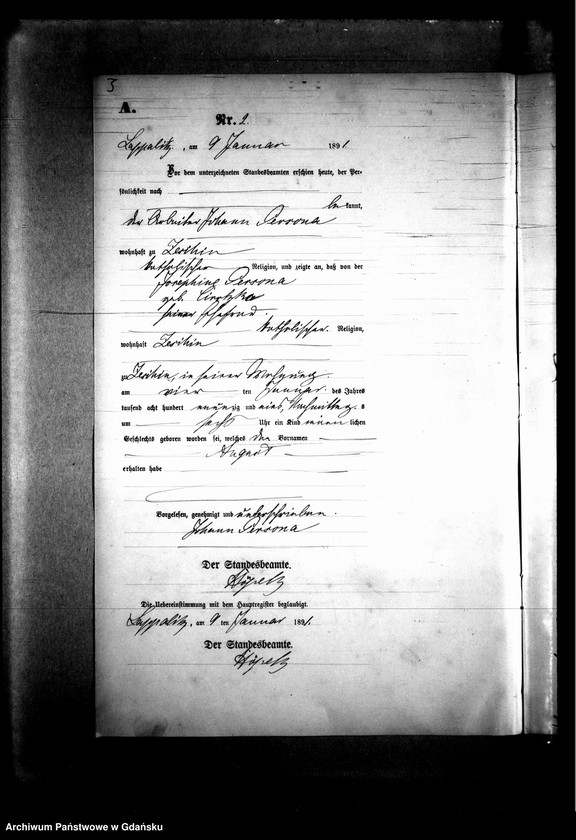 3
A.
Nr. 2.
Lappalitz, am 9 Januar 1891.
Vor dem unterzeichneten Standesbeamten erschien heute, der Per-
sönlichkeit nach
be kannt,
der Arbeiter Johann Persona
wohnhaft zu Zeschin
katholischer Religion, und zeigte an, daß von der
Josephine Persona
geb.
seiner Ehefrau
katholischer Religion,
wohnhaft Zeschin
zu Zeschin, in seiner Wohnung
am vier ten Januar des Jahres
tausend acht hundert neunzig und eins, Nachmittags
um sechs Uhr ein Kind männlichen
Geschlechts geboren worden sei, welches den Vornamen
August
erhalten habe
Vorgelesen, genehmigt und unterschrieben.
Johann Persona
Der Standesbeamte.
Die Uebereinstimmung mit dem Hauptregister beglaubigt.
Lappalitz, am 9 ten Januar 1891.
Der Standesbeamte.
Archiwum Państwowe w Gdańsku